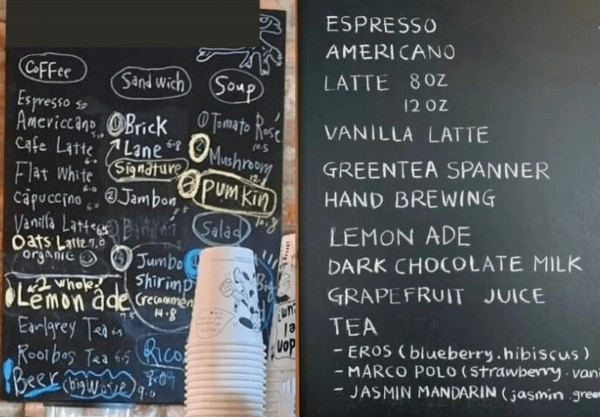 Coffee
Espresso 5.0
Americcano 5.0
Cafe Latte 6.0
Flat White 6.0
Capuccino 6.0
Vanilla Latte 6.5
Oats Latte 7.0
organic
2 whole!
Lemon ade
Earlgrey Tea
Rooibos Tea 6.5
Beer (big Wave) 9.0
Sandwich
① Brick
Lane 6.8
Signature
② Jambon
Jumbo
Shirimp
(recommen
14.8
Rico
Soup
① Tomato Rosé
10.5
② Mushroom
12
Pumkin
10.8
Salad
Big
ESPRESSO
AMERICANO
LATTE 8 OZ
12 OZ
VANILLA LATTE
GREENTEA SPANNER
HAND BREWING
LEMON ADE
DARK CHOCOLATE MILK
GRAPEFRUIT JUICE
TEA
- EROS (blueberry.hibiscus)
- MARCO POLO (strawberry.vani
- JASMIN MANDARIN (jasmin.gree